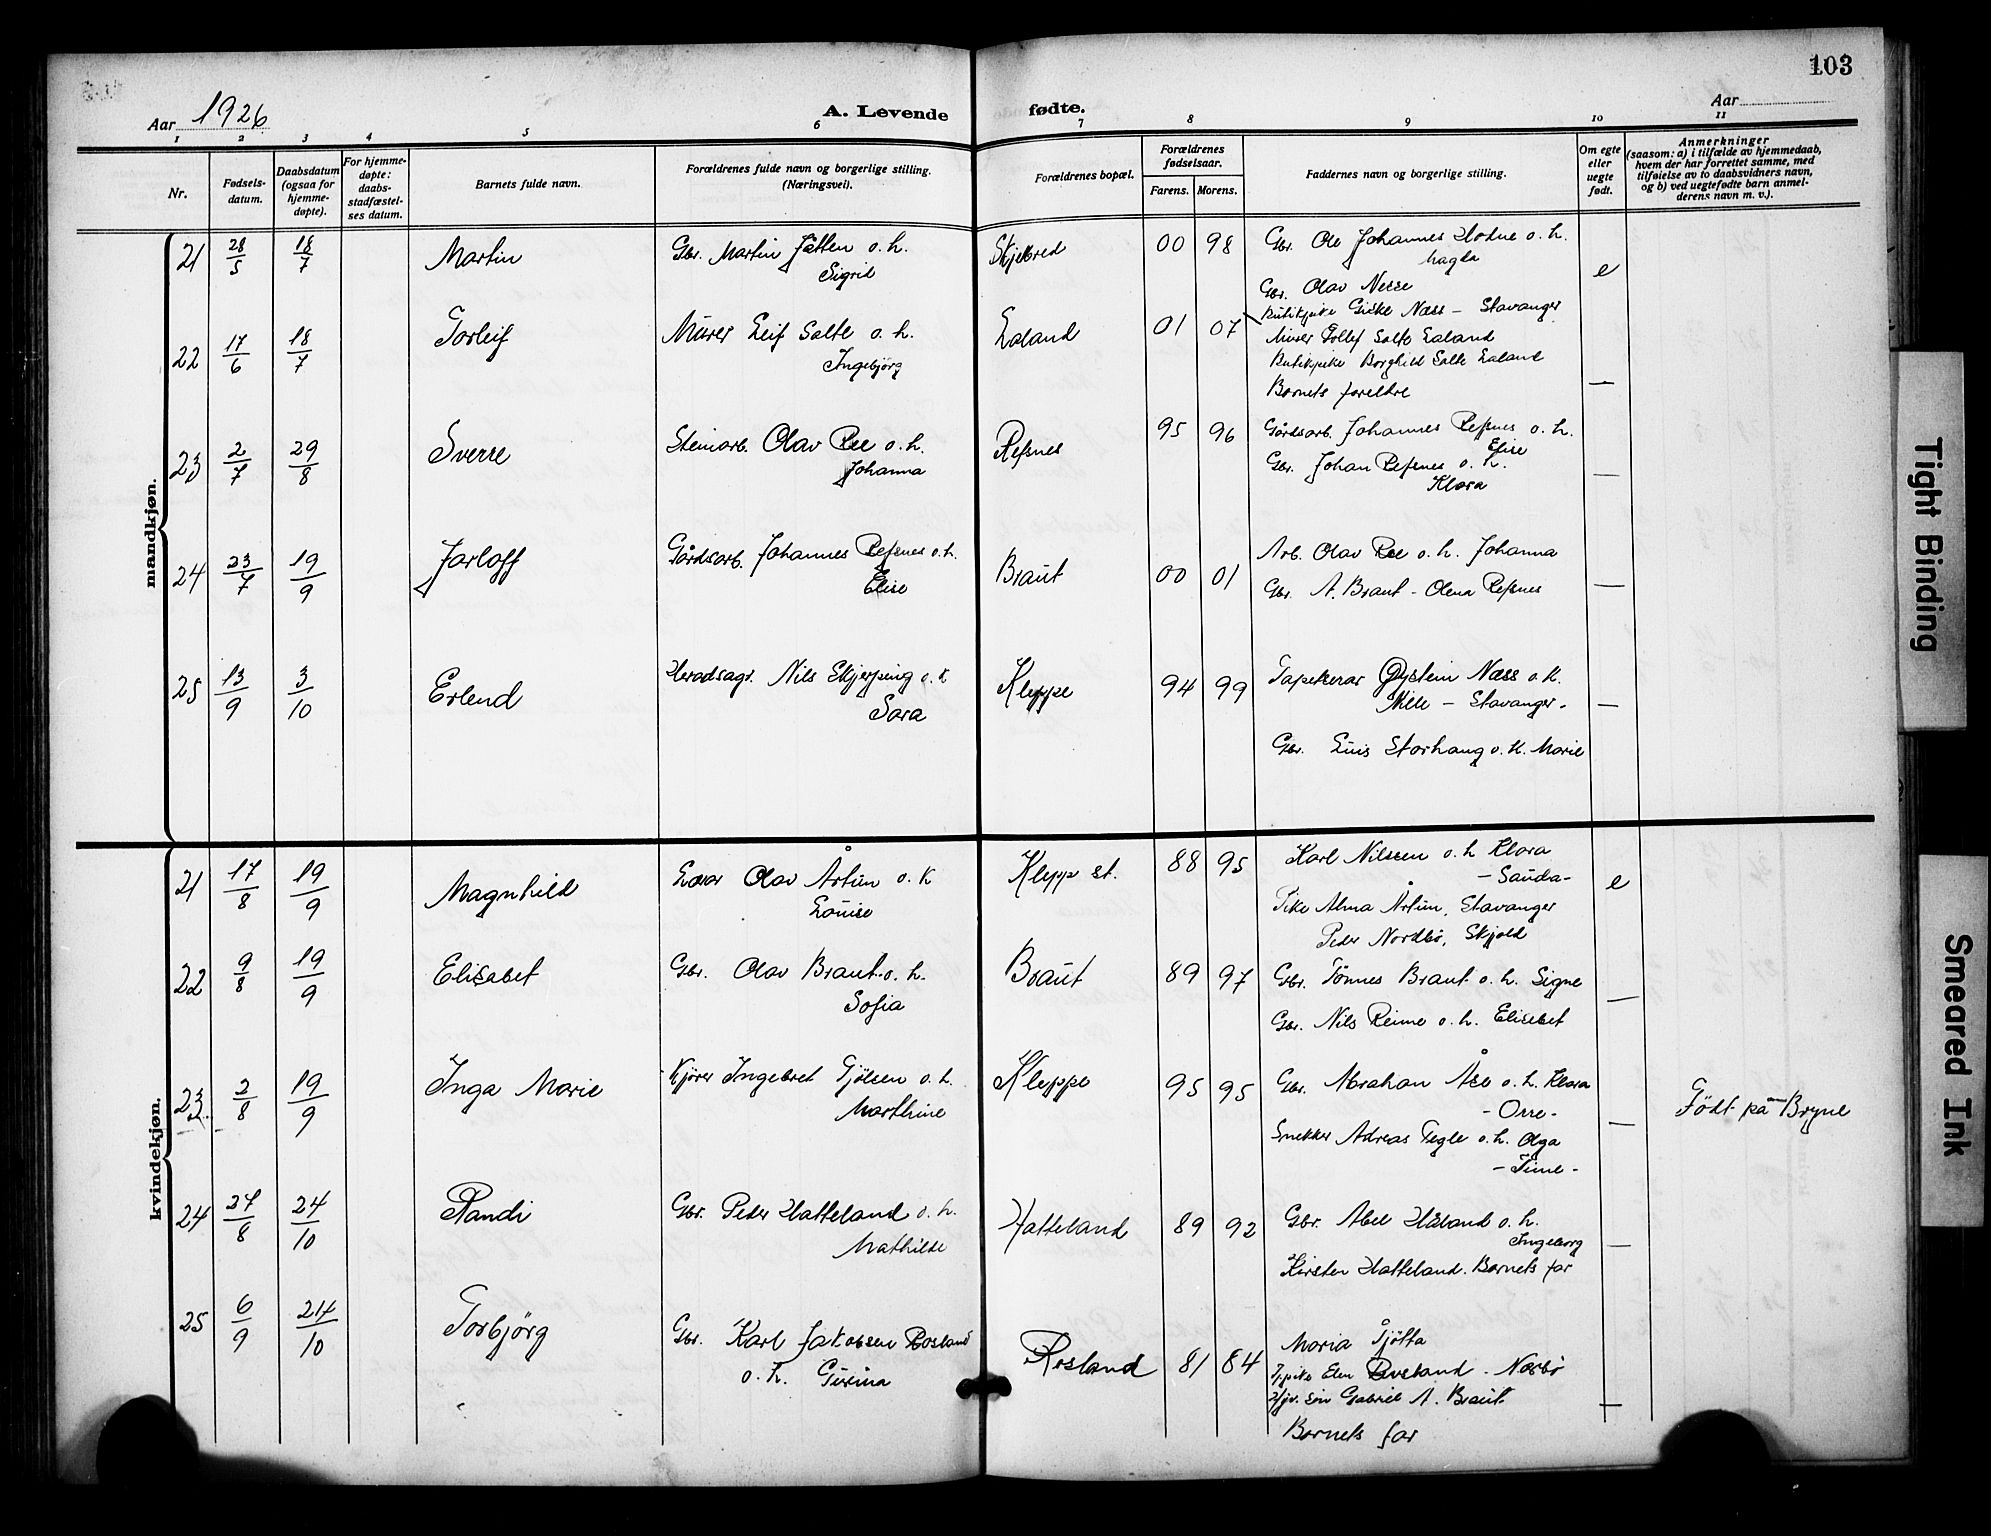 103
Aar 1926
A. Levende fødte.
Aar
1 2 3 4 5 6 7 8 9 10 11
Nr.
Fødsels-datum.
Daabsdatum (ogsaa for hjemme-døpte).
For hjemme-døpte: daabs-stadfæstel-ses datum.
Barnets fulde navn.
Forældrenes fulde navn og borgerlige stilling. (Næringsvei).
Forældrenes bopæl.
Forældrenes fødselsaar.
Farens. Morens.
Faddernes navn og borgerlige stilling.
Om egte eller uegte født.
Anmerkninger
(saasom: a) i tilfælde av hjemmedaab,
hvem der har forrettet samme, med
tilføielse av to daabsvidners navn,
og b) ved uegtefødte barn anmel-
derens navn m. v.).
mandkjøn.
21 28/5 18/7 Martin Gbr. Martin Jåtten o. h. Skjebred 00 98 Gbr. Ole Johannes Hodne o. h.
Sigrid Magla e
Gbr. Olav Nesse
22 17/6 18/7 Torleif Murer Leif Salte o. h. Ealand 01 07 Butikpike Giske Næss – Stavanger
Ingebjörg Murer Tollef Salte Ealand
Butikpike Borghild Salte Ealand
Barnets foreldre —
23 2/7 29/8 Sverre Steinarb. Olav Ree o. h. Refsnes 95 96 Gårdsarb. Johannes Refsnes o. h.
Johanna Elise
Gbr. Johan Refsnes o. h. —
Klara
24 23/7 19/9 Jarloff Gårdsarb. Johannes Refsnes o. h. Braut 00 01 Arb. Olav Ree o. h. Johanna
Elise Gbr. A. Braut - Olena Refsnes —
25 13/9 3/10 Erlend Heradsagr. Nils Skjerpeing o. k Kleppe 94 99 Tapetserar Øystein Næss o. k.
Sara Mille – Stavanger. —
Gbr. Enis Storhaug o. k. Marie
kvindekjøn.
21 17/8 19/9 Magnhild Lærar Olav Årtun o. k Klepp st. 88 95 Karl Nilssen o. h Klara
Louise - Sauda - e
Pike Alma Årtun, Stavanger
Peder Nordbö, Skjold
22 9/8 19/9 Elisabet Gbr. Olav Braut o. h. Braut 89 97 Gbr. Tönnes Braut o. h. Signe
Sofia —
Gbr. Nils Reime o. h. Elisabet
23 2/8 19/9 Inga Marie Kjörer Ingebret Gjölsen o. h. Kleppe 95 95 Gbr. Abrahan Åse o. h. Klara
Marthine - Orre - Född på Bryne
Snekker Adreas Tegle o. h. Olga —
- Time -
24 27/8 24/10 Randi Gbr. Peder Hatteland o. h. Hatteland 89 92 Gbr. Abel Håland o. h.
Mathilde Ingeborg —
Kirsten Hatteland. Barnets far
25 6/9 24/10 Torbjörg Gbr. Karl Jakobsen Rosland Rosland 81 84 Maria Tjötta
o. h. Gurina Elen Rosland - Nærbö
Gabriel A. Braut —
Barnets far
Tight Binding
Smeared Ink